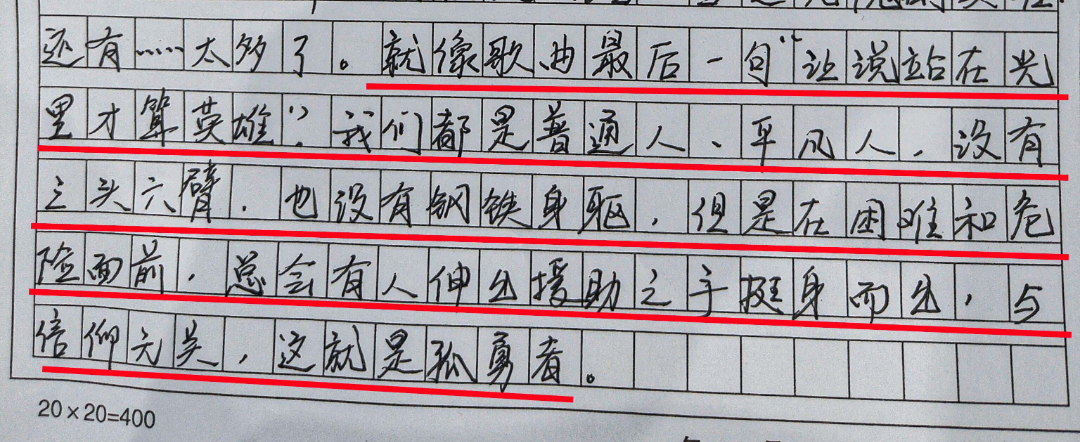 还有……太多了。就像歌曲最后一句“让说站在光
里才算英雄”。我们都是普通人、平凡人，没有
三头六臂，也没有钢铁身躯，但是在困难和危
险面前，总会有人伸出援助之手挺身而出，与
信仰无关，这就是孤勇者。
20×20=400